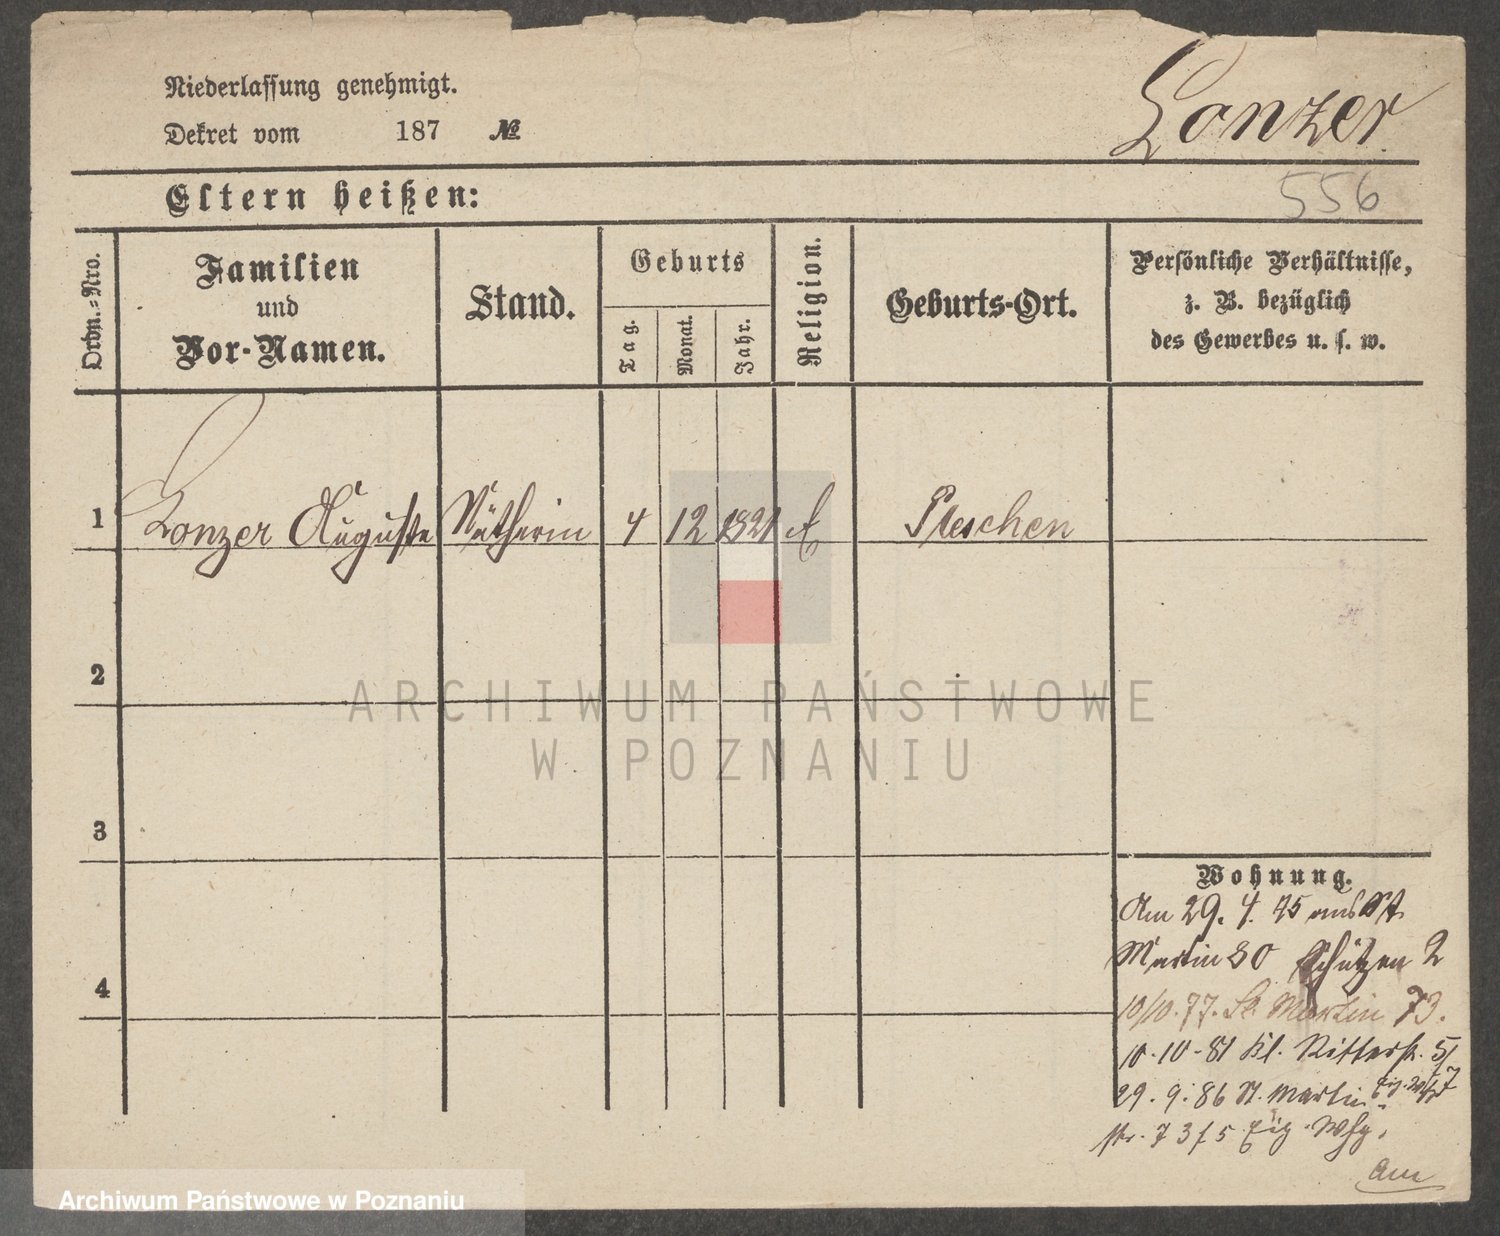 Niederlassung genehmigt.
Dekret vom 187 №
Lonzer
Eltern heißen:
556
Ordn.-Nro.
Familien und Vor-Namen.
Stand.
Geburts
Tag.
Monat.
Jahr.
Religion.
Geburts-Ort.
Persönliche Verhältnisse,
z. B. bezüglich
des Gewerbes u. s. w.
1 Lonzer Auguste Nätherin 4 12 1821 Pleschen
2
ARCHIWUM PAŃSTWOWE
W POZNANIU
3
4
Wohnung.
Am 29. 4. 75 aus St.
Martin 80 Schützen 2
10/10. 77. St. Martin 73.
10-10-81 Kl. Ritterstr.
29. 9. 86 St. Martin
str. 73 Eig. Whg.
Archiwum Państwowe w Poznaniu